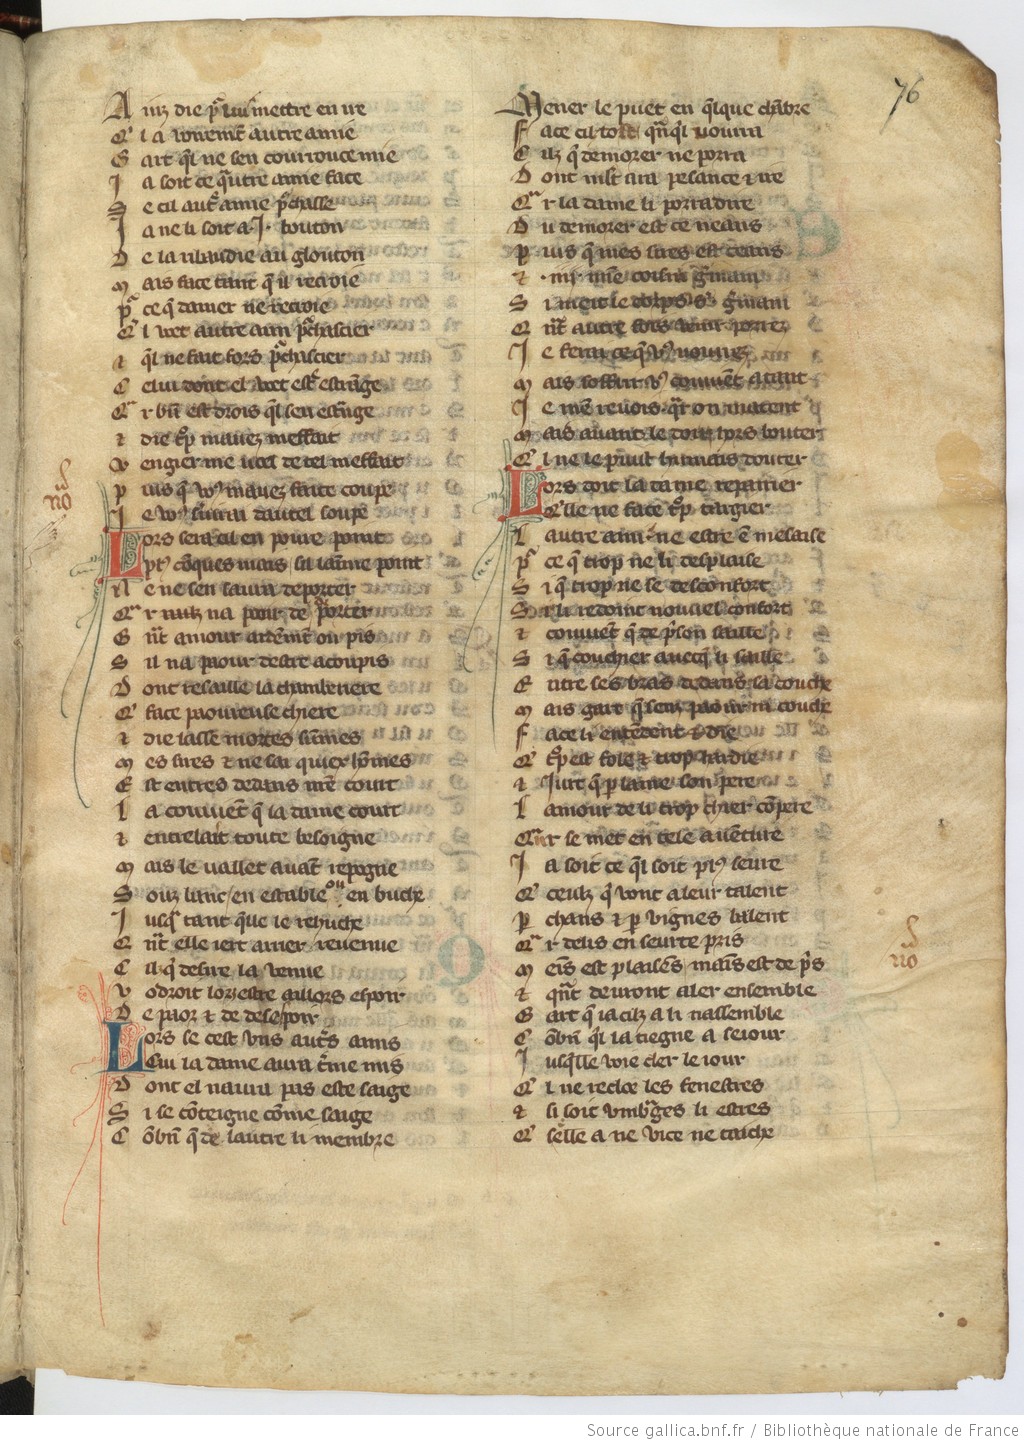 76
A inz die pr lui mettre en vie
Q i l a vraiemt autre amie
G art ql ne sen courrouce mie
J a soit ce qutre amie face
S e cil autre amie prchasse
J a ne li soit a .I. bouton
D e la ribaudie au glouton
M ais face tant q il recroie
Pr ce q damer ne recroie
Q i l vet autre ami prchacier
Et ql ne fait fors prchacier
C elui dont el vet estre estrange
Qr bn est drois ql sen estrange
Et die trop mauez meffait
V engier me vuel de tel meffait
P uis q vos mauez faite coupe
J e vos seruirai dautel soupe
L ors sera cil en poure point
P lus conques mais sil laime point
N e ne sen saura deporter
Qr nulz na pooir de porter
G nt amour ardemt ou pis
S il na paour destre acoupis
D ont resaille la chamberiere
Q face paoureuse chiere
Et die lasse mortes summes
M es sires et ne sai quiex hommes
E st entres dedans nre court
L a conuient q la dame court
Et entrelait toute besoigne
M ais le uallet auant repogne
S ouz banc en estable ou en buche
J usqs tant quele le rehuche
Q nt elle iert arrier reuenue
C il q desire la venue
V odroit lorz estre aillors espoir
D e paor et de desespoir
L ors se cest vns autrs amis
C ui la dame aura trme mis
D ont el naura pas este saige
S i se conteigne comme saige
C ombn q de lautre li membre
M ener le puet en qlque chambre
F ace cil tost qnqi vourra
C ilz q demorer ne porra
D ont mlt aura pesance et ire
Qr la dame li porra dire
D u demorer est ce neans
P uis q mes sires est ceans
Et .IIII. mie cosin grmain
S i ment le corps st grmain
Q nt autre fois venir porrez
J e ferai ce q vos vourrez
M ais soffrir vos conuient atant
J e men reuois qr on matent
M ais auant le doit hors bouter
Q i l ne le puist humais douter
L ors doit la dame repairier
Q elle ne face trop targier
L autre ami ne estre en mesaise
Pr ce q trop ne li desplaise
S i q trop ne se desconfort
S i li redoint nouuel confort
Et conuient q de prson saille
S i q couchier auecq li saille
E ntre ses bras dedans sa couche
M ais gart q senz paour ni couche
F ace li entendent et die
Q trop est fole et trop hardie
Et Jurt q p lame son pere
L amour de li trop chier compere
Qnt se met en tele auenture
J a soit ce ql soit plus seure
Q ceulz q vont a leur talent
P chans et p vignes balent
Qr delis en seurte pris
M eins est plaisens mains est de pris
Et qnt deuront aler ensemble
G art q ia cilz a li nassemble
C ombn ql la tiegne a seiour
J usqlle voie cler le iour
Q i ne reclose les fenestres
Et si soit vmbrages li estres
Q selle a ne vice ne taiche